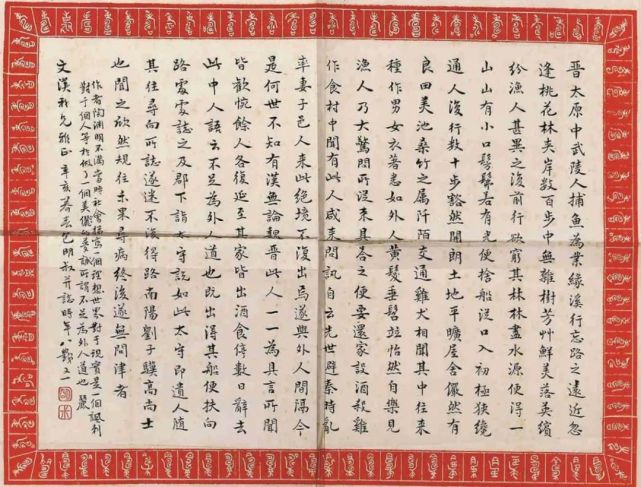 晉太原中武陵人捕魚為業緣溪行忘路之遠近忽
逢桃花林夾岸數百步中無雜樹芳艸鮮美落英繽
紛漁人甚異之復前行欲窮其林林盡水源便浔一
山山有小口髣髴若有光便捨船從口入初極狹纔
通人復行數十步豁然開朗土地平曠屋舍儼然有
良田美池桑竹之属阡陌交通雞犬相聞其中往来
種作男女衣著悉如外人黄髮垂髫竝怡然自樂見
漁人乃大驚問所從来具荅之便要還家設酒殺雞
作食村中聞有此人咸来問訊自云先世避秦時亂
率妻子邑人来此絶境不復出焉遂與外人間隔今
是何世不知有漢無論魏晉此人一一為具言所聞
皆歎惋餘人各復延至其家皆出酒食停數日辭去
此中人語云不足為外人道也既出得其船便扶向
路處處誌之及郡下詣太守説如此太守即遣人隨
其往尋向所誌遂迷不復得路南陽劉子驥高尚士
也聞之欣然規往未果尋病終後遂無問津者
作者陶淵明不滿當時社會描寫個理想世界對于現實是一個諷刺
對于個人等於做了個美夢誠所謂不足為外人道也
文漢 先雅正辛亥莫春包明叔并誌時年八 又二